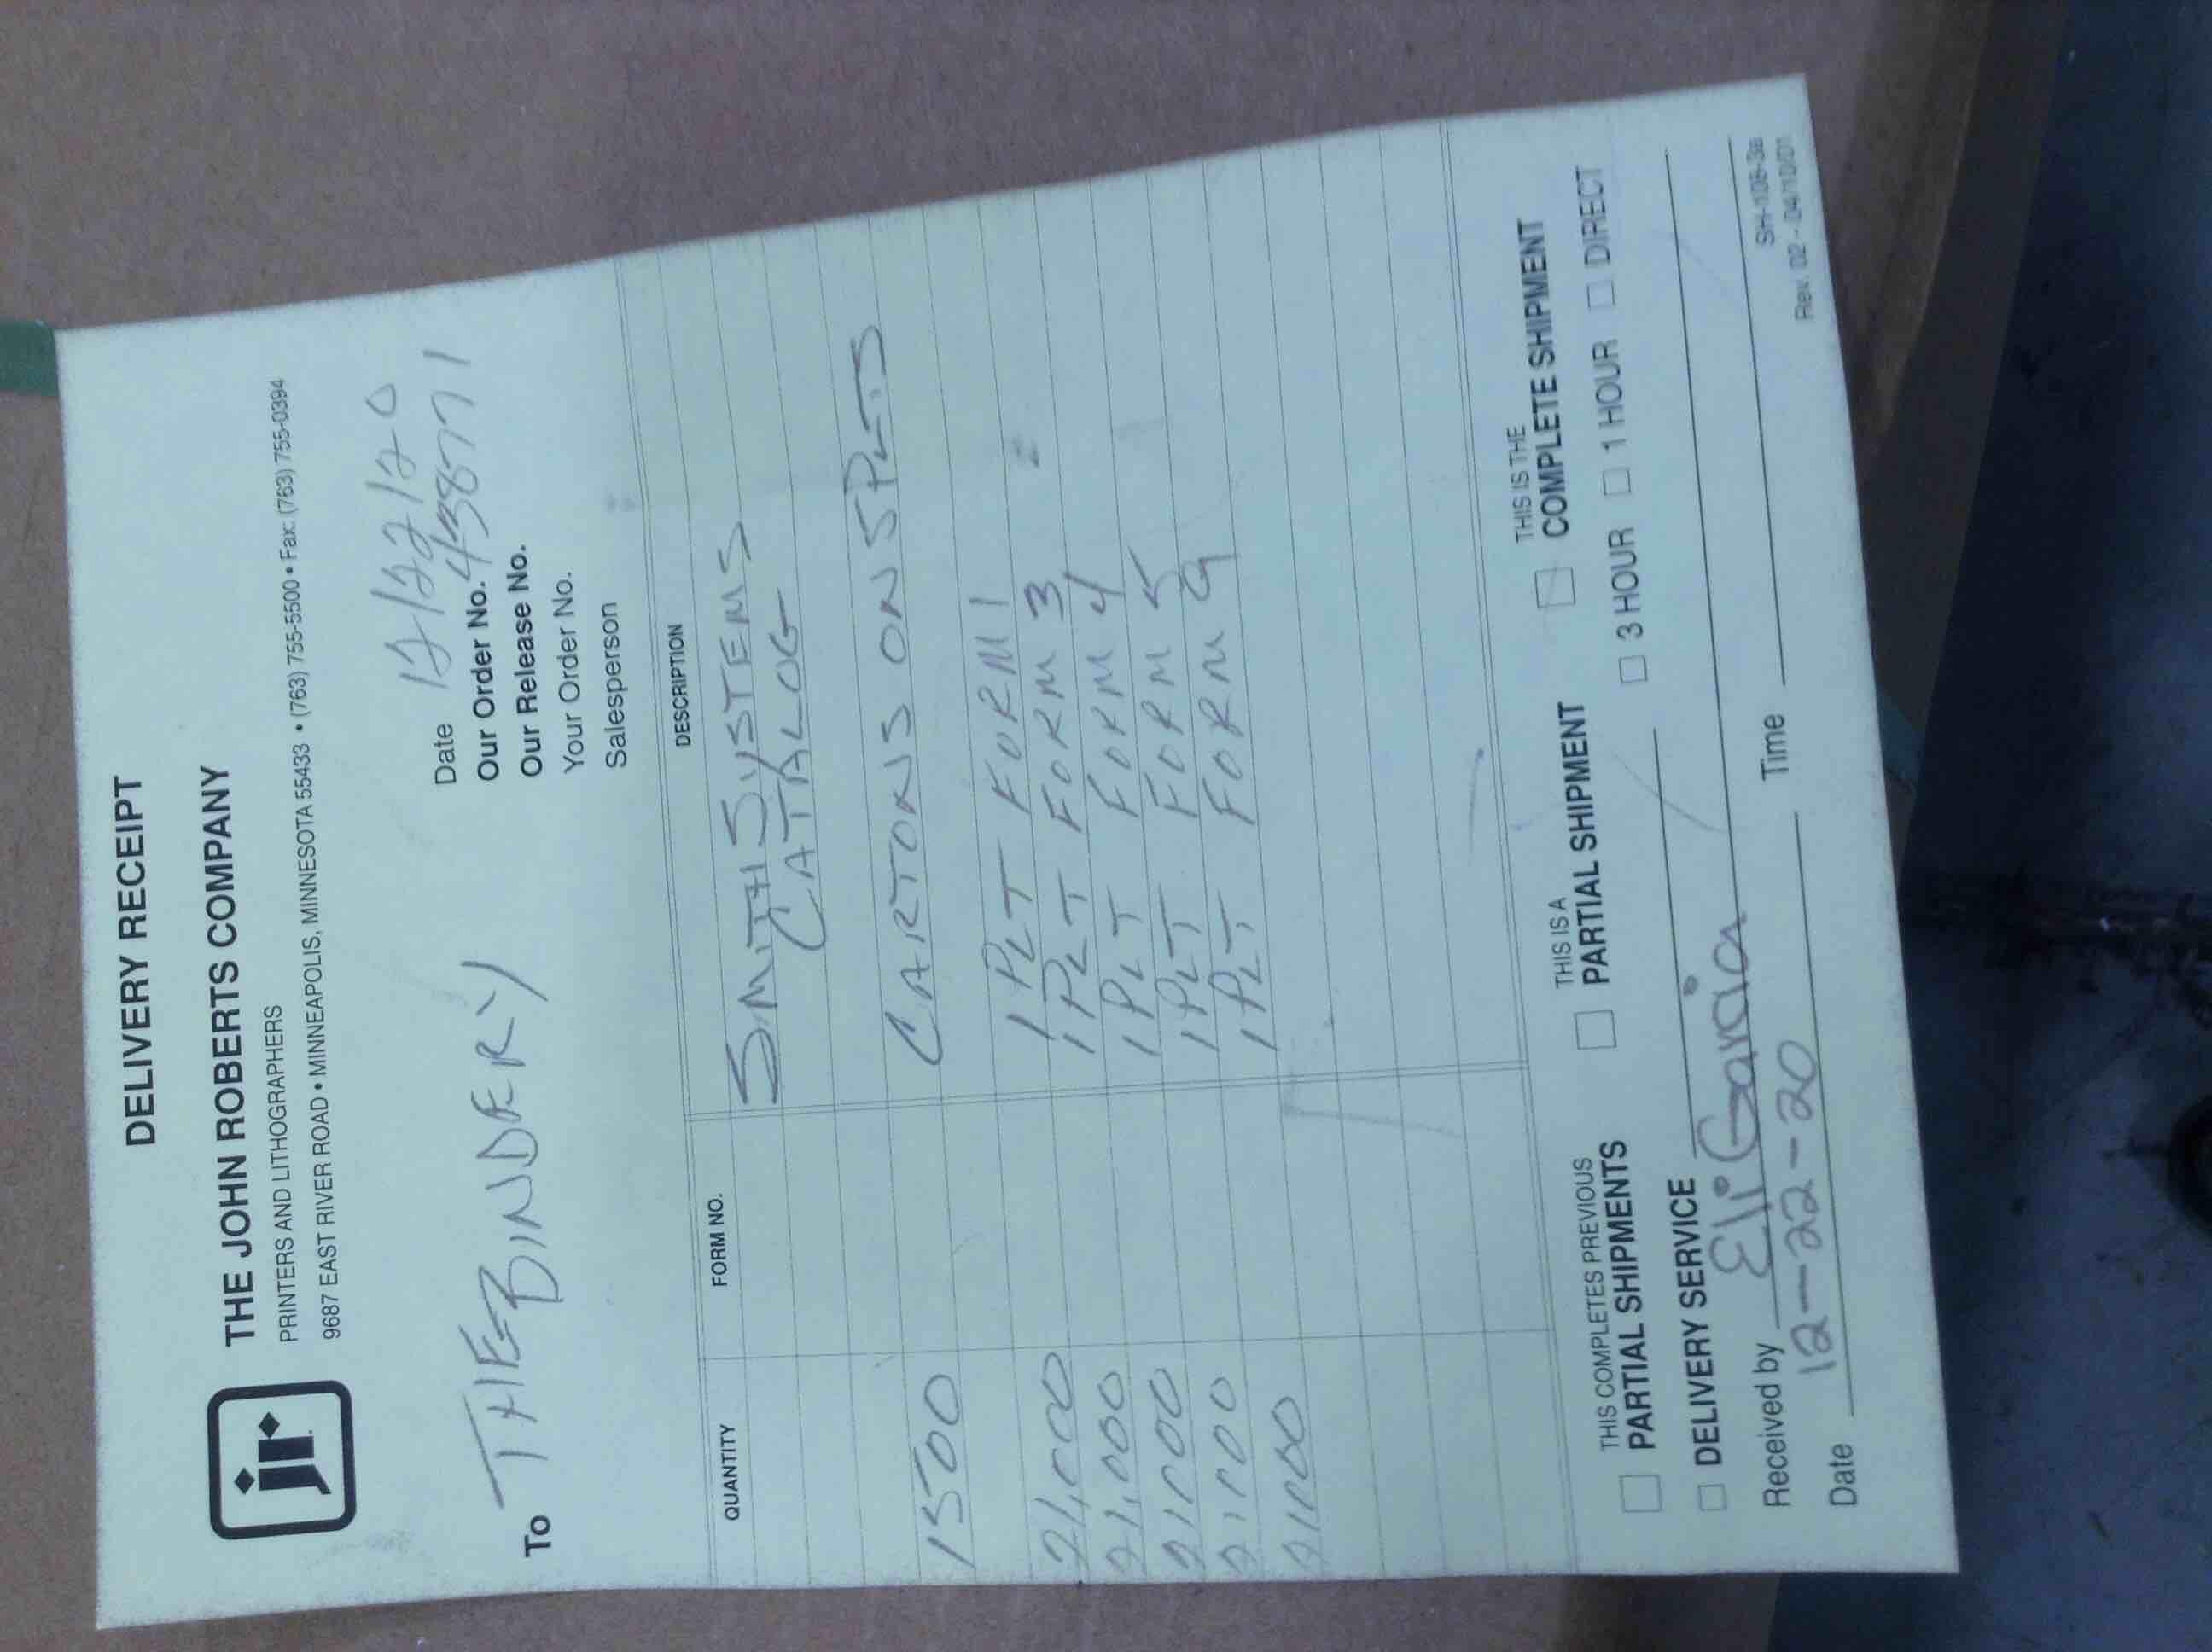 DELIVERY RECEIPT
jr
THE JOHN ROBERTS COMPANY
PRINTERS AND LITHOGRAPHERS
9687 EAST RIVER ROAD • MINNEAPOLIS, MINNESOTA 55433 • (763) 755-5500 • Fax: (763) 755-0394
To THE BINDERY
Date
Our Order No. 438771
Our Release No.
Your Order No.
Salesperson
QUANTITY FORM NO. DESCRIPTION
SMITH SYSTEMS
CATALOG
1500 CARTONS ON 5 PLTS
21,000 1 PLT FORM 1
21,000 1 PLT FORM 3
21000 1 PLT FORM 4
21000 1 PLT FORM 5
21000 1 PLT FORM 9
THIS COMPLETES PREVIOUS
PARTIAL SHIPMENTS
THIS IS A
PARTIAL SHIPMENT
THIS IS THE
COMPLETE SHIPMENT
DELIVERY SERVICE
3 HOUR 1 HOUR DIRECT
Received by Eli Garcia
Date 12-22-20 Time
SH-108-3a
Rev. 02 - 04/10/01